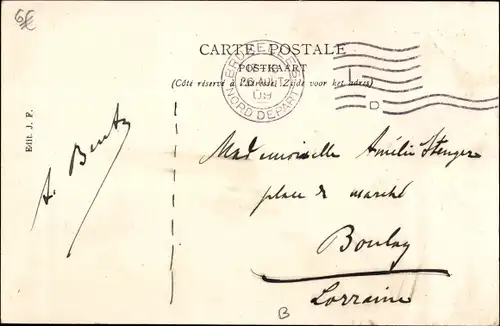 6€
CARTE POSTALE
POSTKAART
(Côté réservé à l'adresse. Zijde voor het adres)
BRUXELLES
09
NORD DEPART
L
D
Edit. J. F.
A. Bentz
Mademoiselle Amélie Stenger
place du marché
Boulay
Lorraine
B